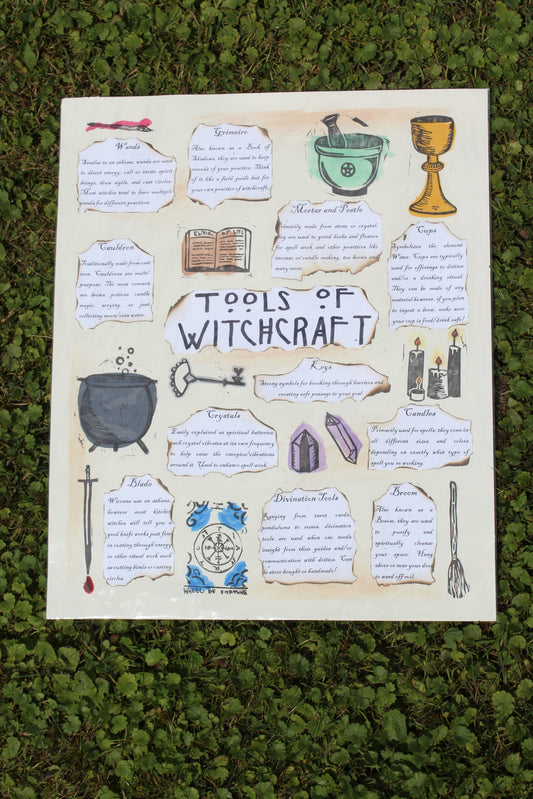 Wands
Similar to an athame, wands are used
to direct energy, call or invite spirit
beings, draw sigils, and cast circles.
Most witches tend to have multiple
wands for different practices.
Grimoire
Also known as a Book of
Shadows, they are used to keep
records of your practice. Think
of it like a field guide but for
your own practice of witchcraft.
Mortar and Pestle
Primarily made from stone or crystal,
they are used to grind herbs and flowers
for spell work and other practices like
incense or candle making, tea brews and
many more.
Cups
Symbolizes the element
Water. Cups are typically
used for offerings to deities
and/or a drinking ritual.
They can be made of any
material however, if you plan
to ingest a brew, make sure
your cup is food/drink safe!
Cauldron
Traditionally made from cast
iron, Cauldrons are multi-
purpose. The most common
are brews, potions, candle
magic, scrying, or just
collecting moon/rain water.
TOOLS OF
WITCHCRAFT
Keys
Strong symbols for breaking through barriers and
creating safe passages to your goal.
Crystals
Easily explained as spiritual batteries,
each crystal vibrates at its own frequency
to help raise the energies/vibrations
around it. Used to enhance spell work.
Candles
Primarily used for spells, they come in
all different sizes and colors
depending on exactly what type of
spell you're working.
Blade
Wiccans use an athame,
however most kitchen
witches will tell you a
good knife works just fine
in cutting through energy
or other ritual work, such
as cutting binds or casting
circles.
WHEEL OF FORTUNE
Divination Tools
Ranging from tarot cards,
pendulums to runes, divination
tools are used when one needs
insight from their guides and/or
communication with deities. Can
be store bought or handmade!
Broom
Also known as a
Besom, they are used
to purify and
spiritually cleanse
your space. Hang
above or near your door
to ward off evil.